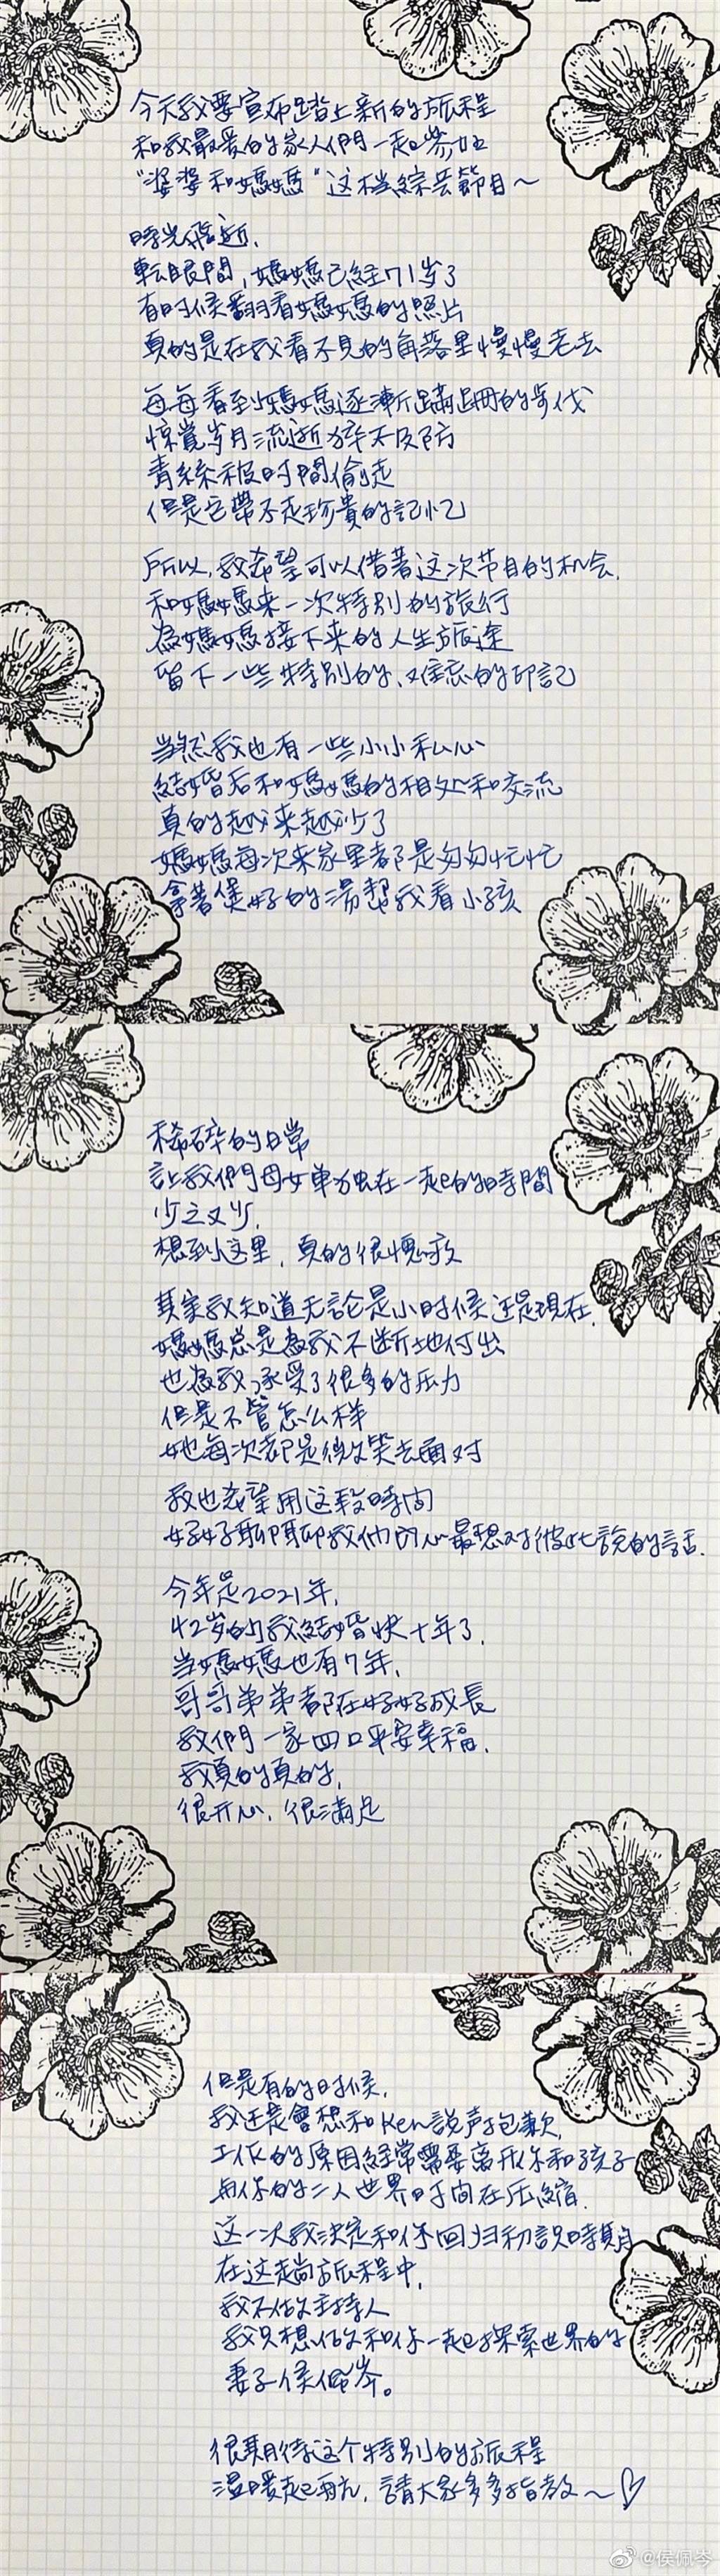 今天我要宣布踏上新的旅程
和我最爱的家人們一起参加
“婆婆和媽媽”这档綜芸節目~
時光飛逝,
転眼間,媽媽已経71岁了
有时候翻看媽媽的照片
真的是在我看不見的角落里慢慢老去
每每看到媽媽逐漸蹣跚的步伐
惊覚岁月流逝猝不及防
青絲被时間偷走
但是它帶不走珍貴的記忆
所以,我希望可以借著这次节目的机会,
和媽媽来一次特别的旅行
為媽媽接下来的人生旅途
留下一些特别的、难忘的印記
当然我也有一些小小私心
結婚后和媽媽的相处和交流
真的越来越少了
媽媽每次来家里都是匆匆忙忙
拿著煲好的湯幫我看小孩
稀碎的日常
让我們母女单独在一起的時間
少之又少,
想到这里,真的很愧疚
其実我知道无論是小时候还是現在,
媽媽总是為我不断地付出
也為我承受了很多的压力
但是不管怎么样
她每次都是微笑去面对
我也希望用这段時间
好好聊聊我们内心最想对彼此說的話.
今年是2021年,
42岁的我結婚快十年了,
当媽媽也有7年,
哥哥弟弟都在好好成長
我們一家四口平安幸福,
我真的真的,
很开心,很滿足
但是有的时候,
我还是會想和Ken說声抱歉,
工作的原因経常需要离开你和孩子
与你的二人世界时间在压縮,
这一次我决定和你回归初識時期
在这趟旅程中,
我不做主持人
我只想做和你一起探索世界的
妻子侯佩岑。
很期待这个特别的旅程
温暖起航,請大家多多指教~♡
@侯佩岑